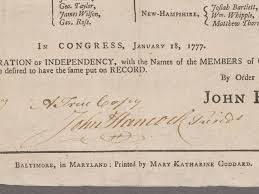 Geo. Taylor,
James Wilson,
Geo. Ross.
NEW-HAMPSHIRE,
Josiah Bartlett,
Wm. Whipple,
Matthew Thornt
IN CONGRESS, JANUARY 18, 1777.
RATION OF INDEPENDENCY, with the Names of the MEMBERS of C
e desired to have the same put on RECORD.
By Order
JOHN H
A True Copy
John Hancock Presidt
BALTIMORE, in MARYLAND: Printed by MARY KATHARINE GODDARD.